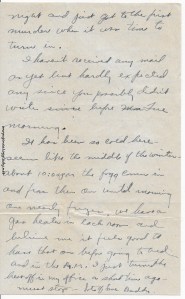 night and just got to the first
murder when it was time to
turn in.
I haven't received any mail
as yet but hardly expected
any since you possibly didn't
write since before
morning.
It has been so cold here
seems like the middle of the winter.
about 10:30 the fog comes in
and from then on until morning
we nearly freeze. we have a
gas heater in each room and
believe me it feels good to
have that on before going to bed
and in the A.M.